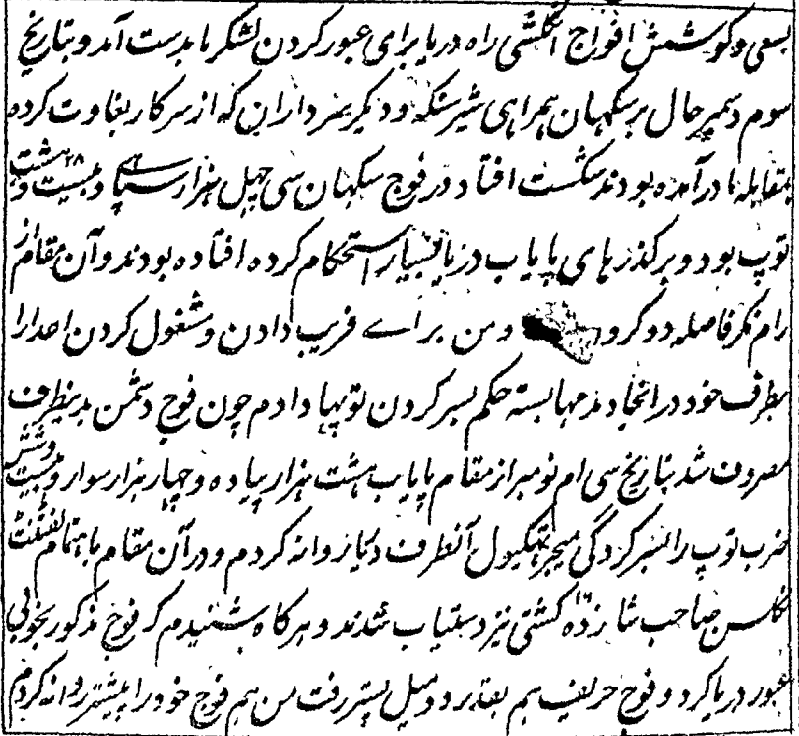 بسعی و کوشش افواج انگلشی راه دریا برای عبور کردن لشکر ما بدست آمد و بتاریخ
سوم دسمبر حال بر سکهان همراهی شیر سنگه و دیگر سرداران که از سرکار بغاوت کرده
بمقابله ما در آمده بودند شکست افتاد در فوج سکهان سی چهل هزار سپاهی و بیست و هشت ۲۸
توپ بود و بر گذرهای پایاب دریا بسیار استحکام کرده افتاده بودند و آن مقام از
رام نگر فاصله دو کروه و من برای فریب دادن و مشغول کردن اعدا را
بطرف خود در انجا دمدمها بسته حکم بسر کردن توپها دادم چون فوج دشمن بدینطرف
مصروف شد بتاریخ سی ام نومبر از مقام پایاب هشت هزار پیاده و چهار هزار سوار و بیست و شش
ضرب توپ را بسرکردگی میجر آنطرف دریا روانه کردم و در آن مقام باهتمام لفتننت
نکلسن صاحب شانزده کشتی نیز دستیاب شدند و هرگاه شنیدم که فوج مذکور بخوبی
عبور دریا کرد و فوج حریف هم بقدر دو میل پستر رفت من هم فوج خود را پیشتر روانه کردم